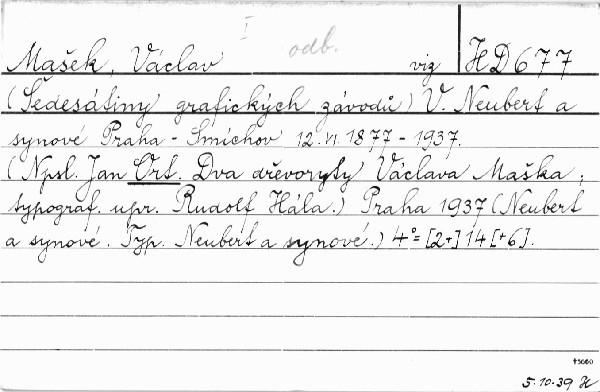 I odb.
Mašek, Václav viz HD677
(Šedesátiny grafických závodů) V. Neubert a
synové Praha - Smíchov 12.VI.1877 - 1937.
(Npsl. Jan Ort. Dva dřevoryty Václava Maška;
typograf. upr. Rudolf Hála.) Praha 1937 (Neubert
a synové. Typ. Neubert a synové.) 4°= [2+] 14 [+6].
5.10.39 H